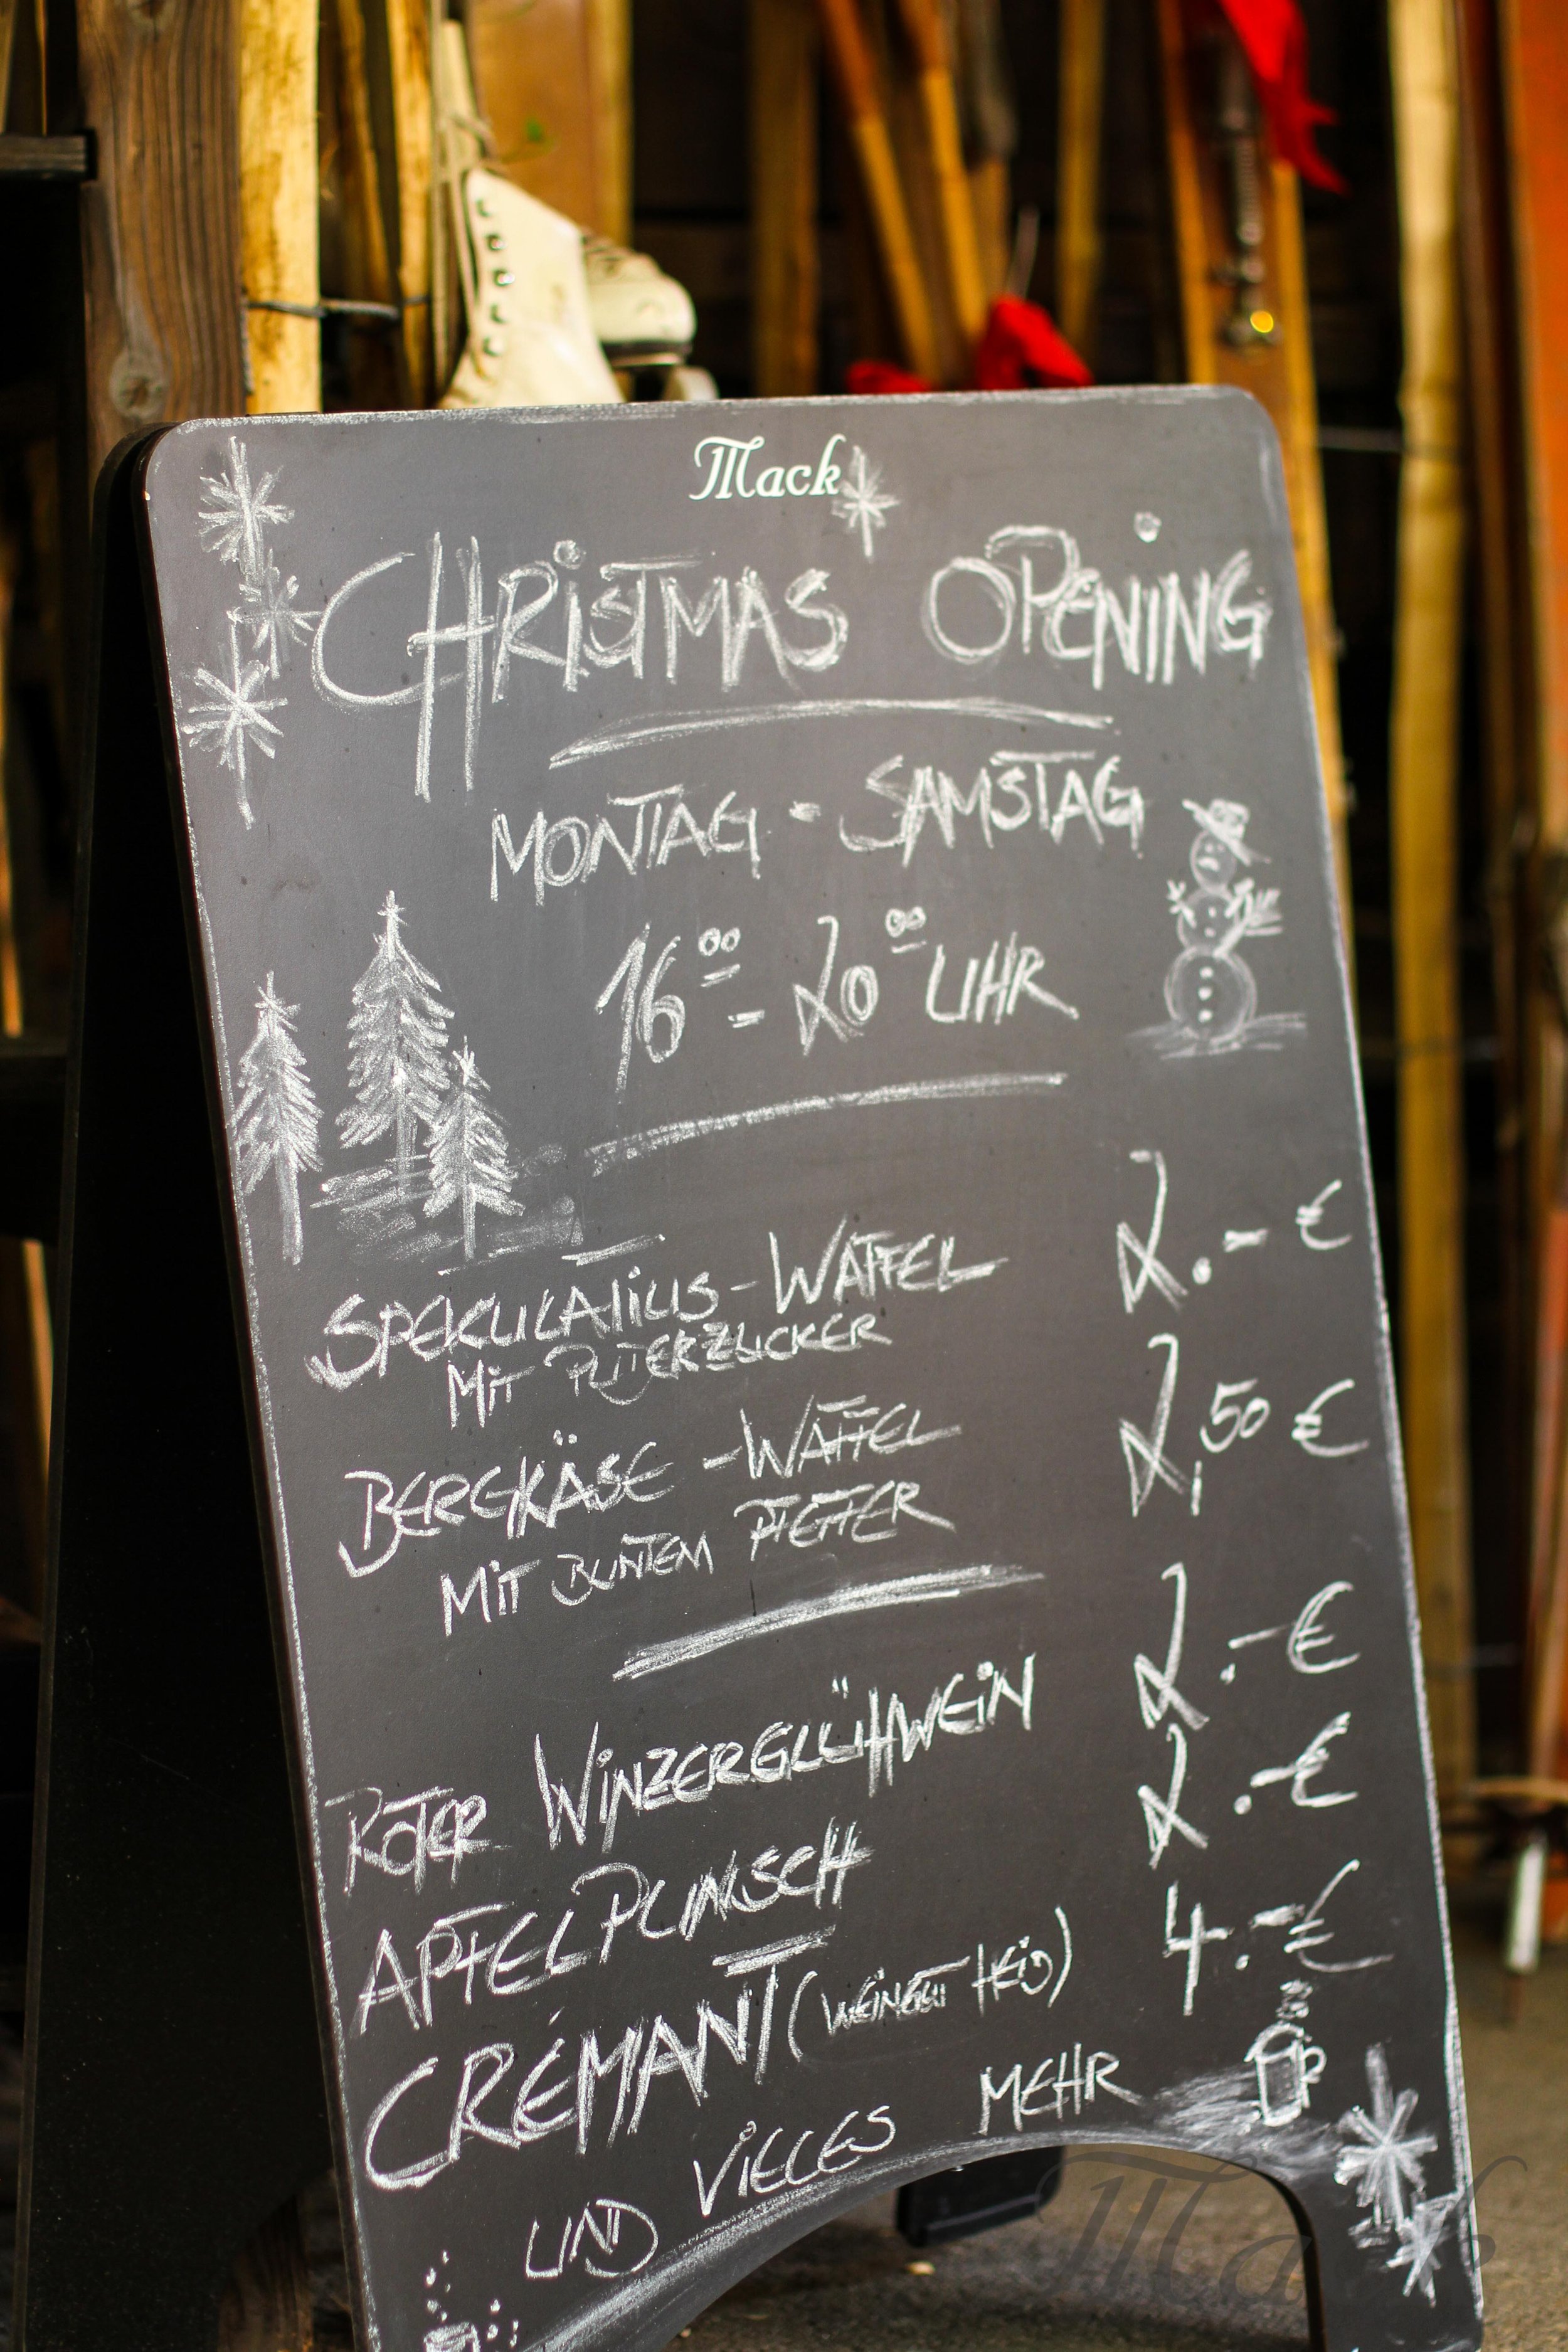 Mack
CHRISTMAS OPENING
MONTAG - SAMSTAG
16⁰⁰ - 20⁰⁰ UHR
SPEKULATIUS - WAFFEL 2.- €
MIT PUDERZUCKER
BERGKÄSE - WAFFEL 2,50 €
MIT BUNTEM PFEFFER
ROTER WINZERGLÜHWEIN 2.- €
APFELPUNSCH 2.- €
CRÉMANT (WEINGUT HEID) 4.- €
UND VIELES MEHR
Mack